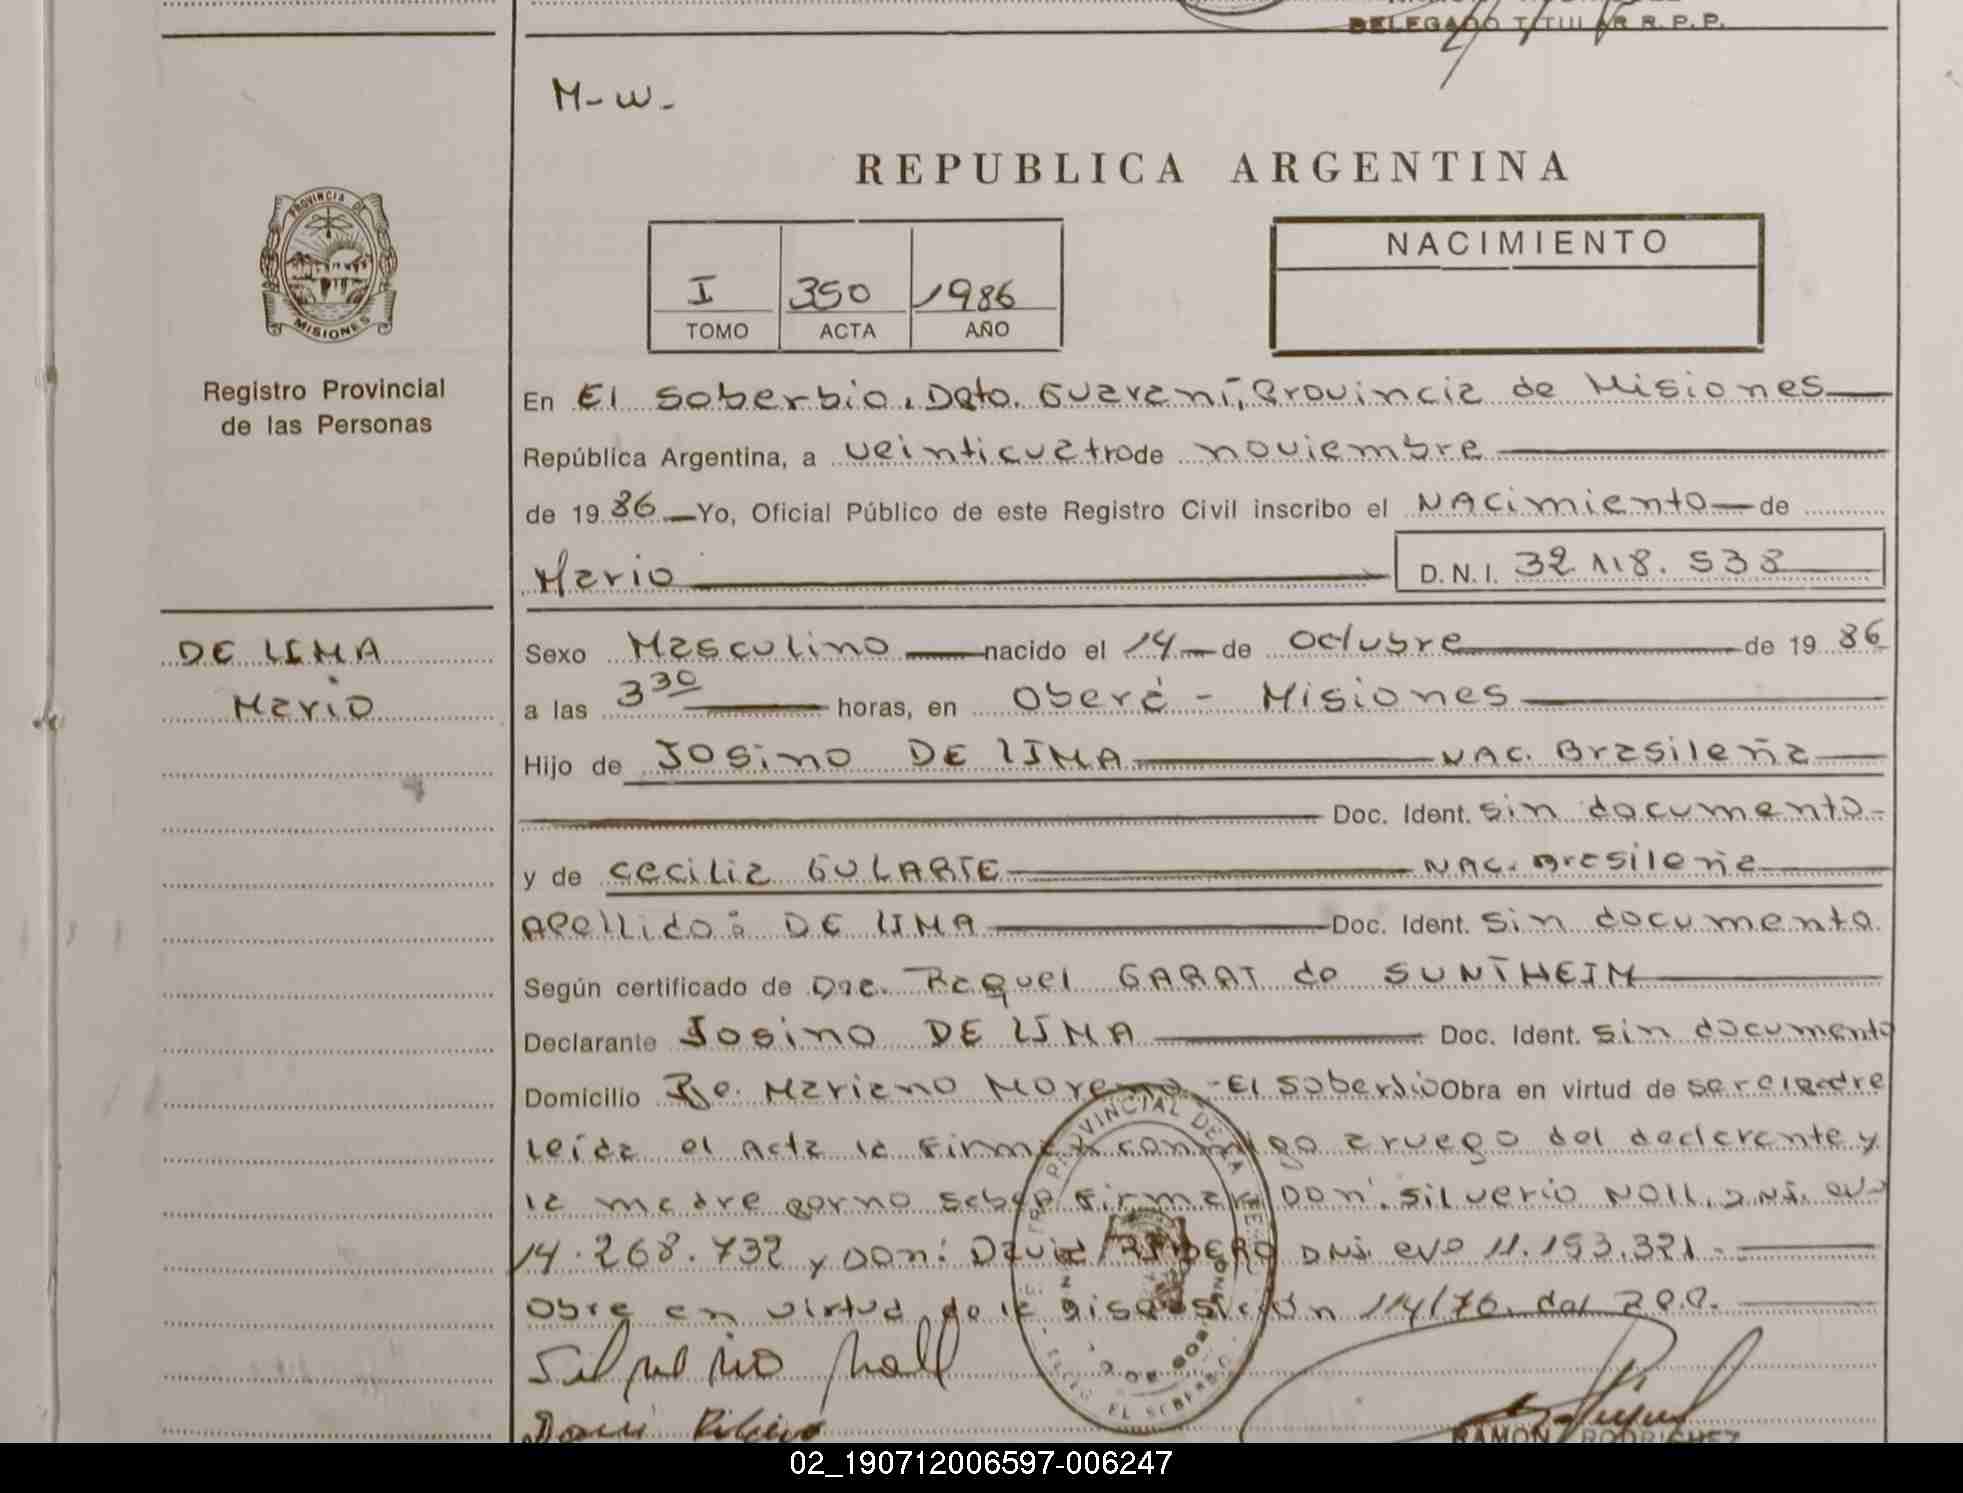 DELEGADO TITULAR R.P.P.
M-W-
REPUBLICA ARGENTINA
PROVINCIA DE
MISIONES
Registro Provincial
de las Personas
I 350 1986
TOMO ACTA AÑO
NACIMIENTO
En El Soberbio, Dpto. Guaraní, Provincia de Misiones
República Argentina, a veinticuatro de noviembre
de 19 86 Yo, Oficial Público de este Registro Civil inscribo el NAcimiento de
Mario D.N.I. 32 118. 538
DE LIMA
Mario
Sexo Masculino nacido el 14 de octubre de 19 86
a las 3 30 horas, en Oberá - Misiones
Hijo de Josino DE LIMA NAC. Brasileña
Doc. Ident. sin documento-
y de Cecilia GULARTE NAC. Brasileña
Apellido: DE LIMA Doc. Ident. sin documento.
Según certificado de Dra. Raquel GARAT de SUNTHEIM
Declarante Josino DE LIMA Doc. Ident. sin documento
Domicilio Mariano Moreno - El Soberbio Obra en virtud de ser el padre
leída el Acta la firman conmigo a ruego del declarante y
la madre por no saber firmar Don: Silverio NOLL, D.N.I.
14.268.732 y Don: David DNI. 11.193.321.-
Obra en virtud de la disposición 114/76. del
Silverio Noll
RAMON RODRIGUEZ
02_190712006597-006247